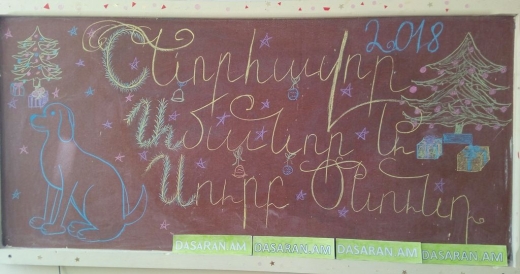 2018
Շնորհավոր
Ամանոր և
Սուրբ Ծնունդ
DASARAN.AM DASARAN.AM DASARAN.AM DASARAN.AM